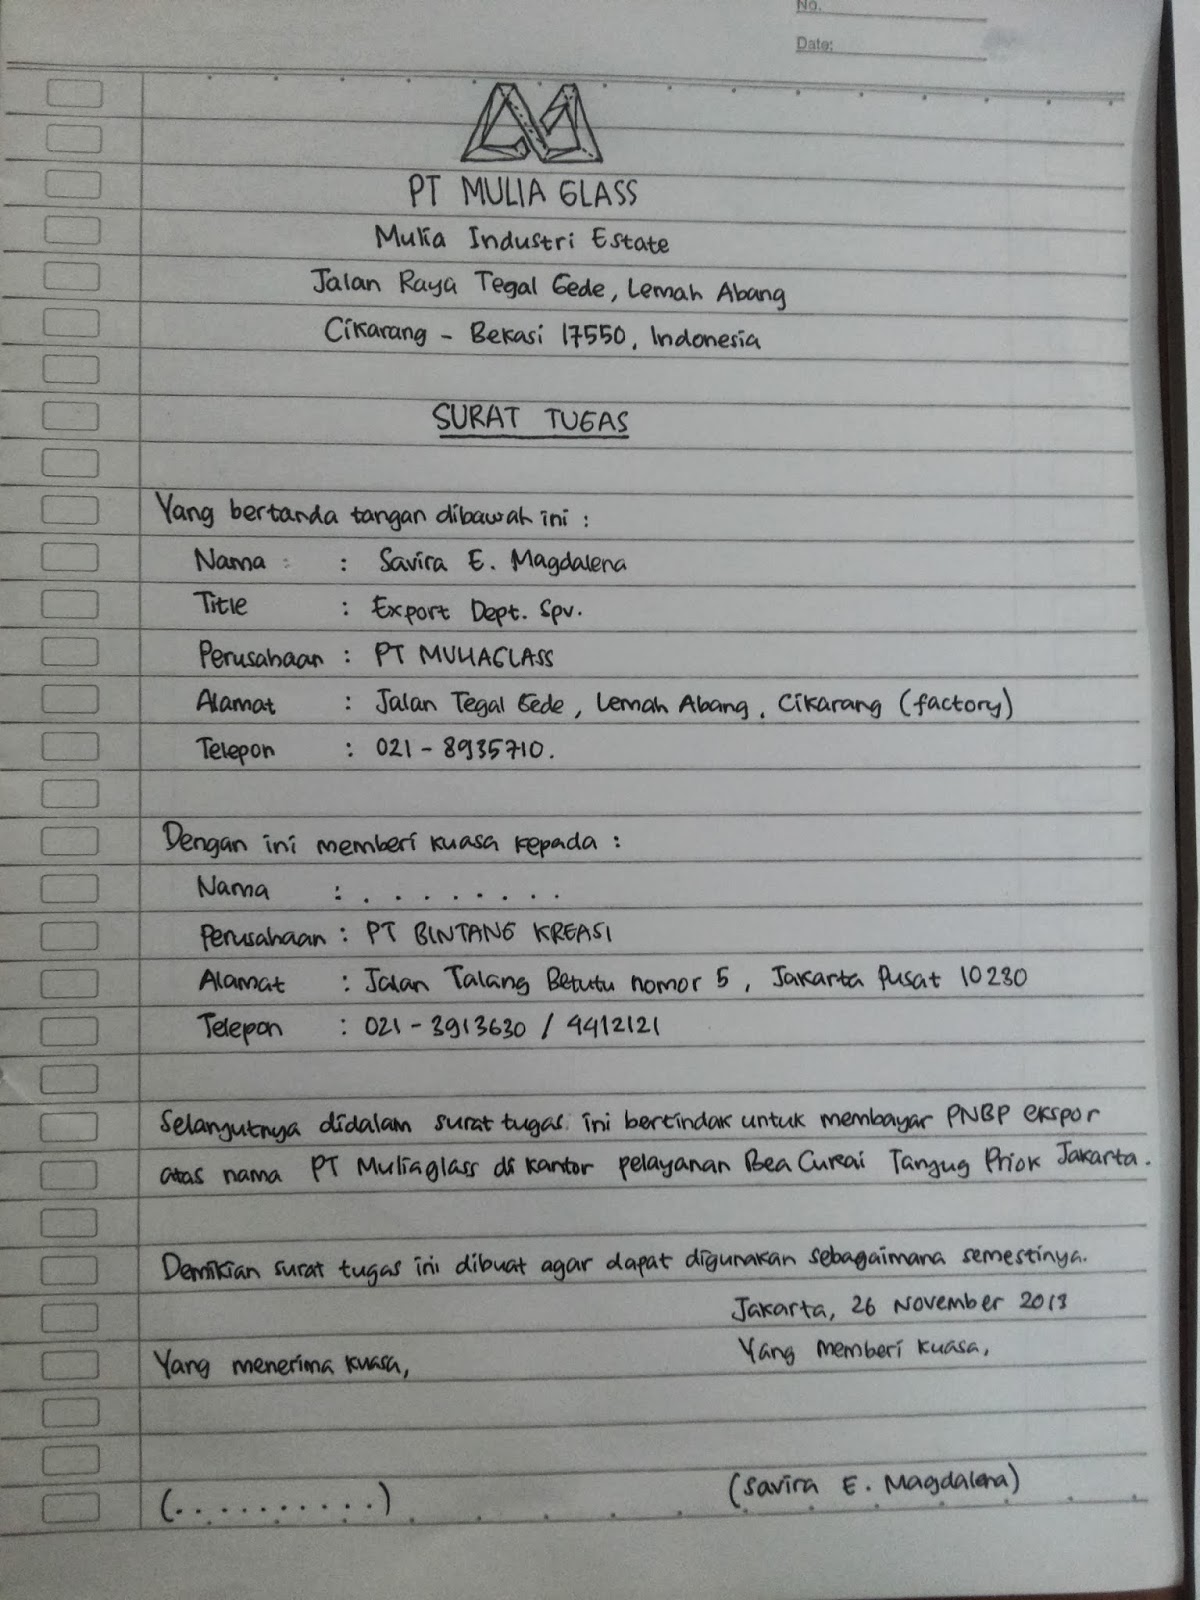 No.
Date:
PT MULIA GLASS
Mulia Industri Estate
Jalan Raya Tegal Gede, Lemah Abang
Cikarang - Bekasi 17550, Indonesia
SURAT TUGAS
Yang bertanda tangan dibawah ini :
Nama : Savira E. Magdalena
Title : Export Dept. Spv.
Perusahaan : PT MULIAGLASS
Alamat : Jalan Tegal Gede, Lemah Abang, Cikarang (factory)
Telepon : 021 - 8935710.
Dengan ini memberi kuasa kepada :
Nama : . . . . . . . . .
Perusahaan : PT BINTANG KREASI
Alamat : Jalan Talang Betutu nomor 5, Jakarta Pusat 10230
Telepon : 021 - 3913630 / 4412121
Selanjutnya didalam surat tugas ini bertindak untuk membayar PNBP ekspor
atas nama PT Muliaglass di kantor pelayanan Bea Cukai Tanjug Priok Jakarta.
Demikian surat tugas ini dibuat agar dapat digunakan sebagaimana semestinya.
Jakarta, 26 November 2013
Yang menerima kuasa, Yang memberi kuasa,
(. . . . . . . . . .) (Savira E. Magdalena)